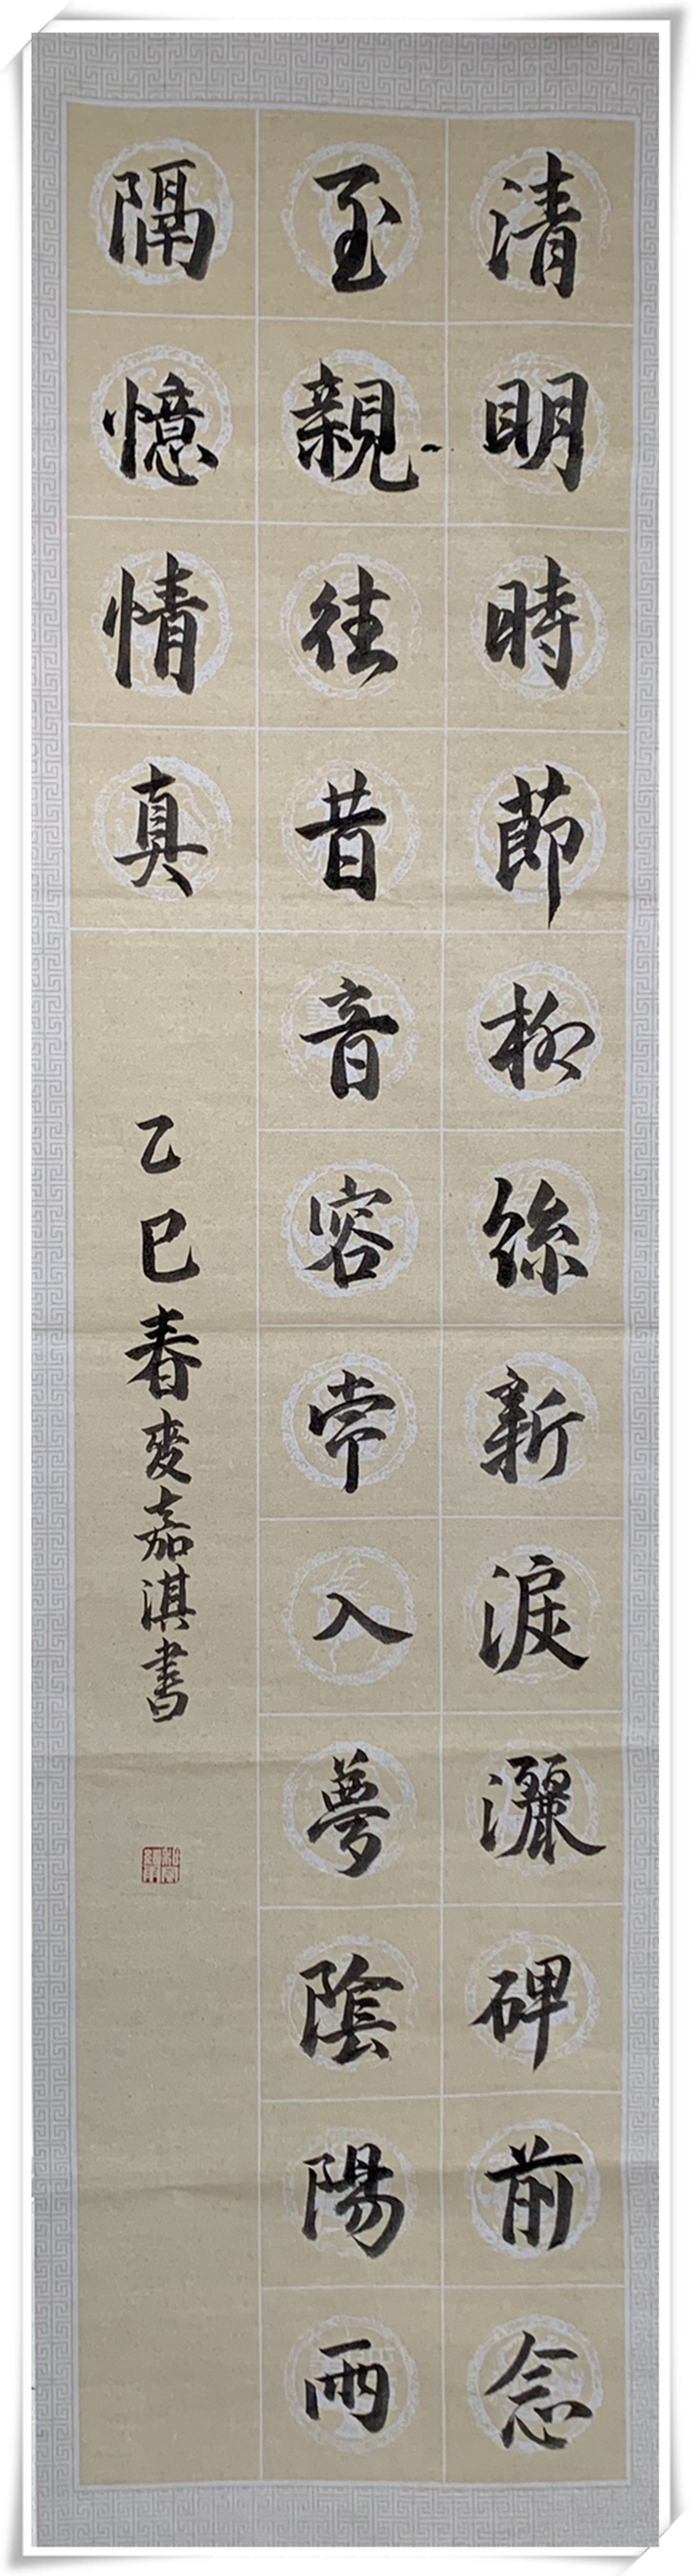 清明時節柳絲新淚灑碑前念
至親往昔音容常入夢陰陽兩
隔憶情真
乙巳春麥嘉淇書